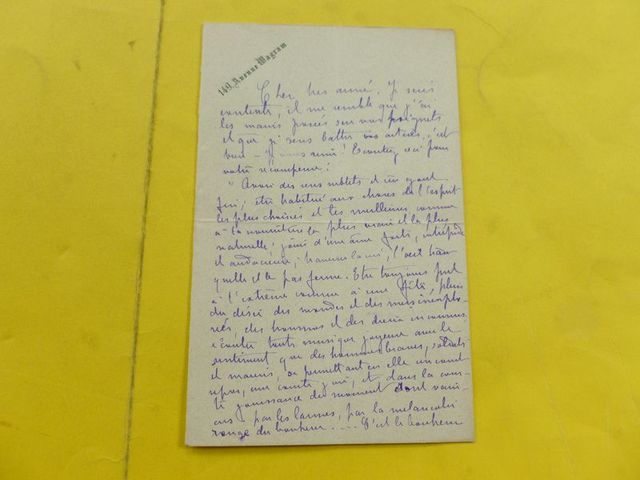 149, Avenue Wagram
Cher très aimé. Je suis
contente, il me semble que j'ai
les mains posées sur vos poignets
et que je sens battre vos artères, c'est
bon - Je vous Ecoutez ceci pour
votre récompense!
" Avoir des sens subtils et un goût
fin; être habitué aux choses de l'esprit
les plus choisies et les meilleures comme
à la nourriture la plus vraie et la plus
naturelle; jouir d'une âme forte, intrépide
et audacieuse; traverser la vie, l'oeil tran
quille et le pas ferme. Etre toujours prêt
à l'extrême comme à une fête, plein
du désir des mondes et des mers inexplo-
rés, des hommes et des dieux inconnus.
écouter toute musique joyeuse avec le
sentiment que des hommes braves, soldats
et marins, se permettent en elle un court
repos, une courte joie, et dans la cour-
te jouissance du moment sont vain-
cus par les larmes, par la mélancolie
rouge du bonheur. .... C'est le bonheur